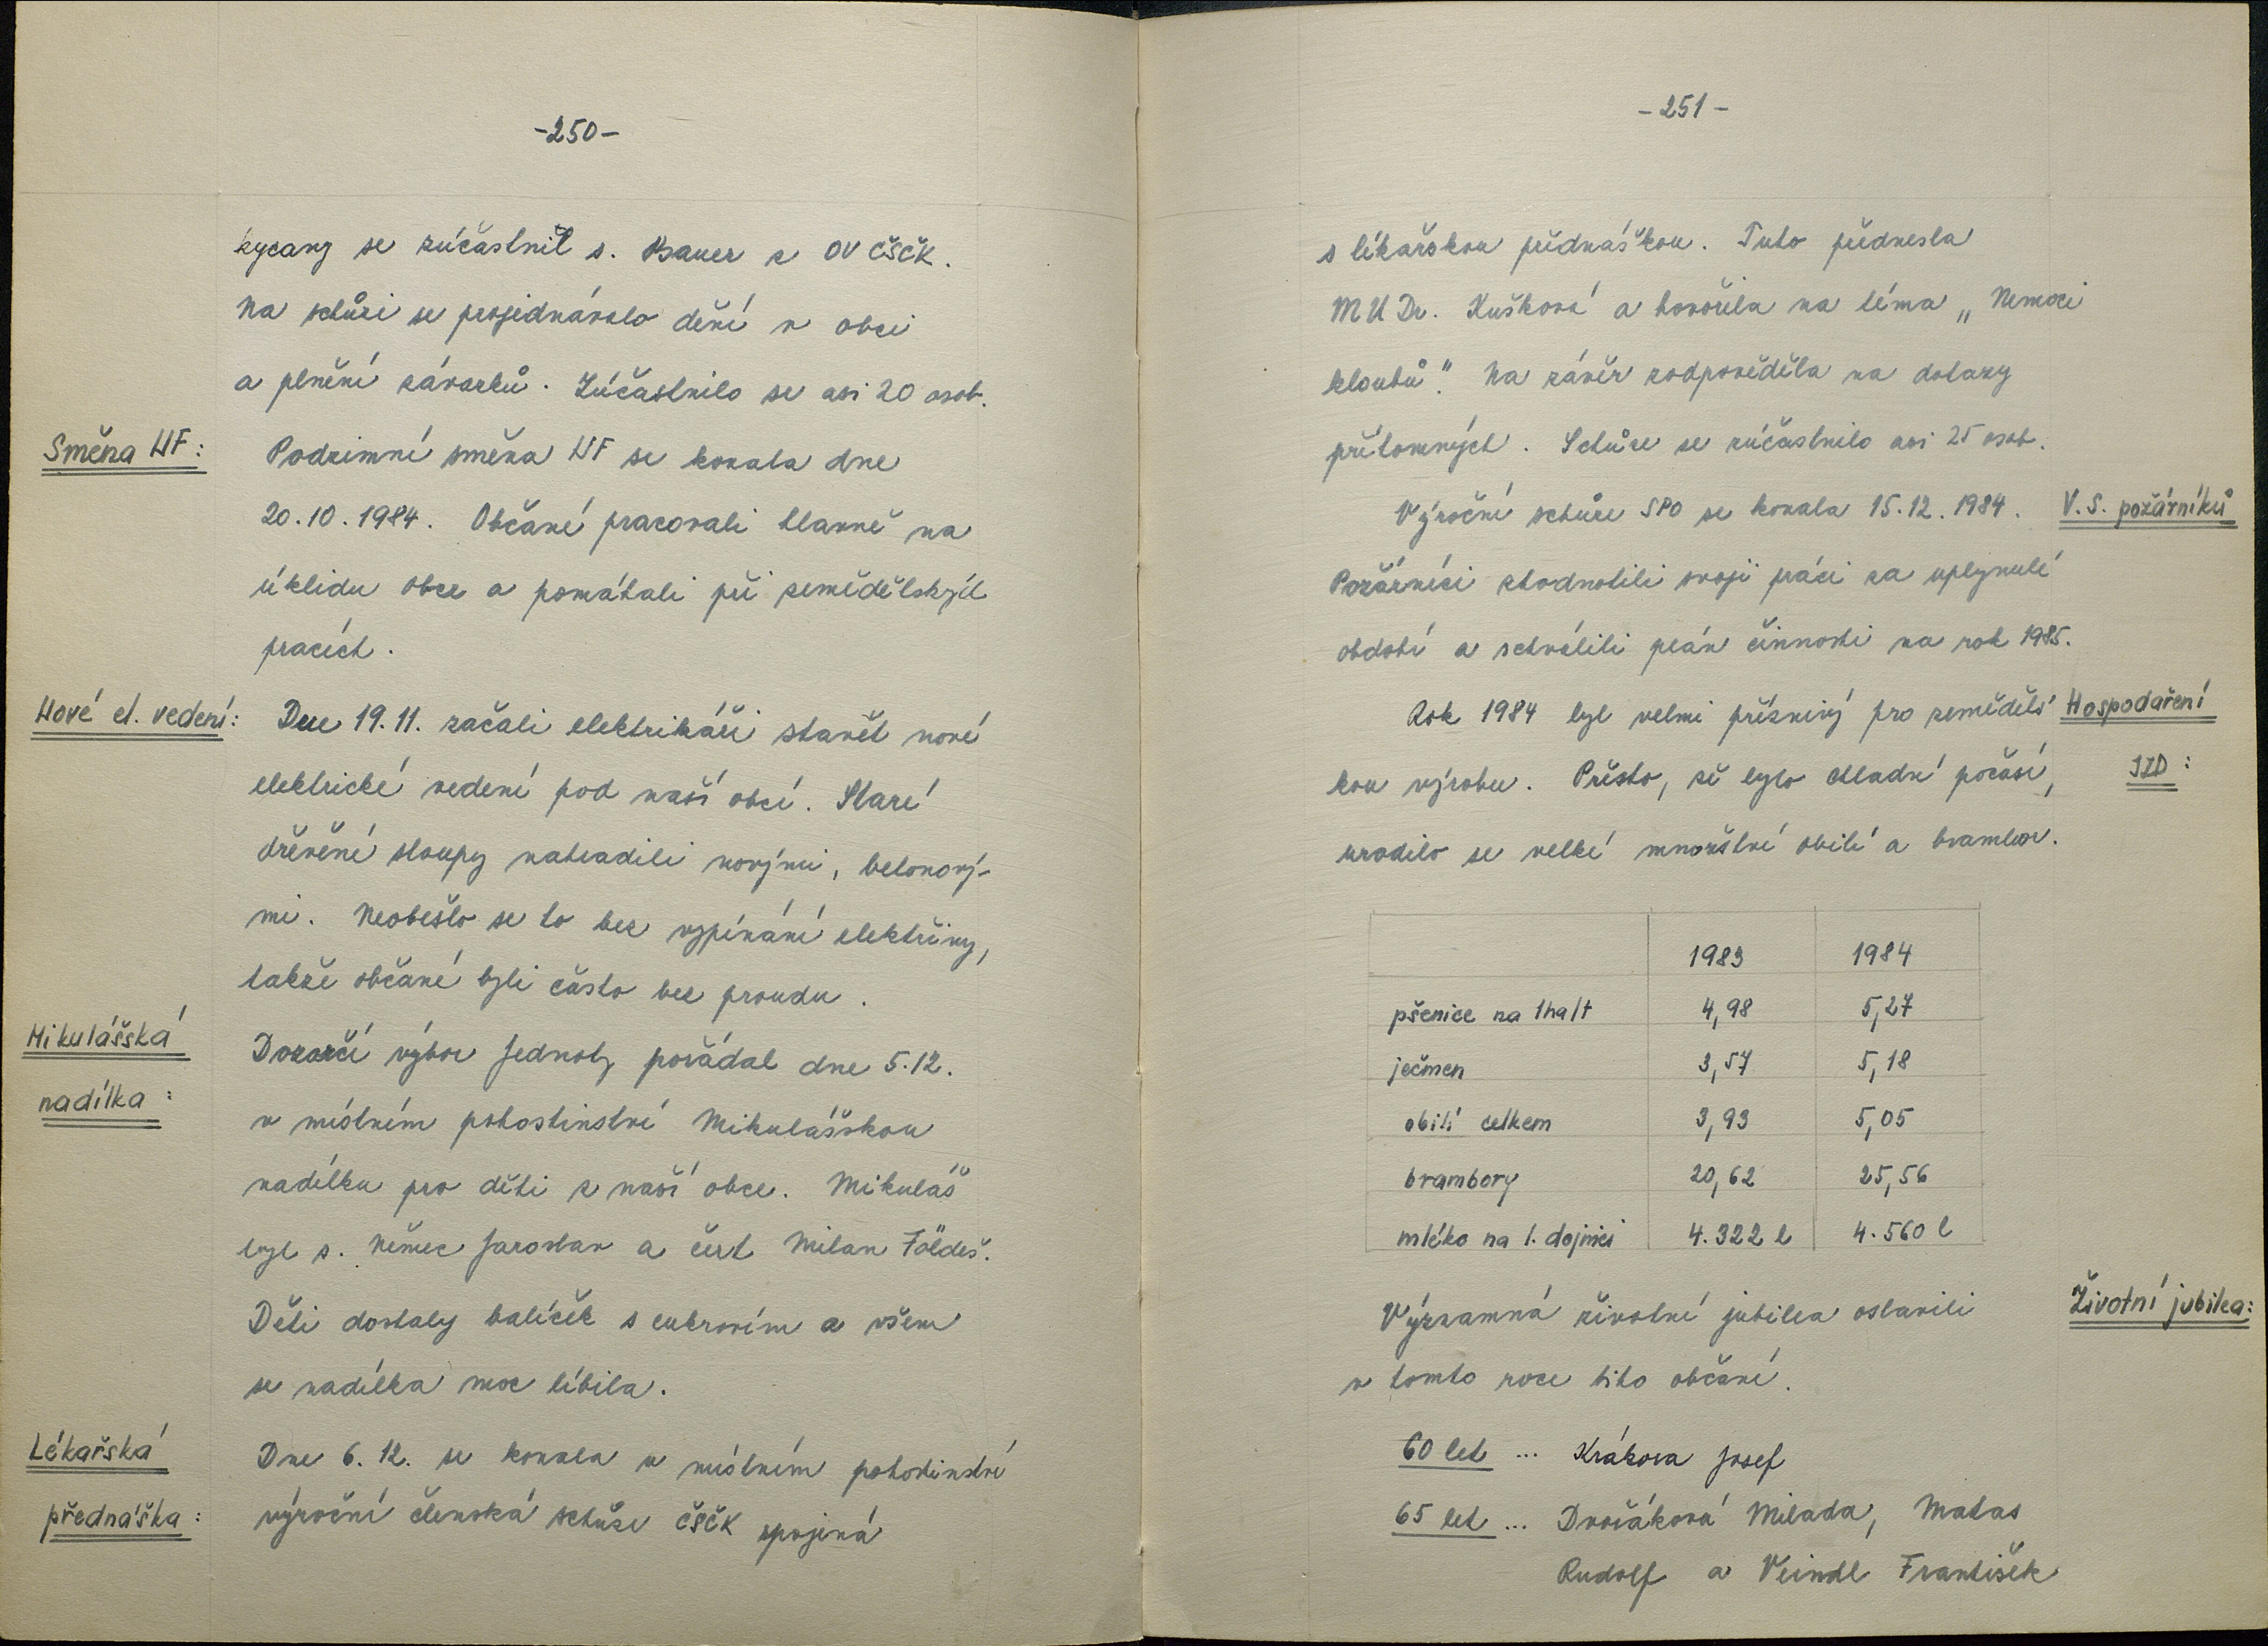 -250-
kycany se zúčastnil s. Bauer z OV ČSČK.
Na schůzi se projednávalo dění v obci
a plnění závazků. Zúčastnilo se asi 20 osob.
Směna NF:
Podzimní směna NF se konala dne
20.10.1984. Občané pracovali hlavně na
úklidu obce a pomáhali při zemědělských
pracích.
Nové el. vedení:
Dne 19.11. začali elektrikáři stavět nové
elektrické vedení pod naší obcí. Staré
dřevěné sloupy nahradili novými, betonový-
mi. Neobešlo se to bez vypínání elektřiny,
takže občané byli často bez proudu.
Mikulášská
nadílka:
Dozorčí výbor Jednoty pořádal dne 5.12.
v místním pohostinství Mikulášskou
nadílku pro děti z naší obce. Mikuláš
byl s. Němec Jaroslav a čert Milan Földeš.
Děti dostaly balíček s cukrovím a všem
se nadílka moc líbila.
Lékařská
přednáška:
Dne 6.12. se konala v místním pohodinství
výroční členská schůze ČSČK spojená
-251-
s lékařskou přednáškou. Tuto přednesla
MUDr. Kušková a hovořila na téma „Nemoci
kloubů". Na závěr zodpověděla na dotazy
přítomných. Schůze se zúčastnilo asi 25 osob.
V. S. požárníků
Výroční schůze SPO se konala 15.12.1984.
Požárníci zhodnotili svoji práci za uplynulé
období a schválili plán činnosti na rok 1985.
Hospodaření
JZD:
Rok 1984 byl velmi příznivý pro zeměděls
kou výrobu. Přesto, že bylo chladné počasí,
urodilo se velké množství obilí a brambor.
1983 1984
pšenice na 1ha/t 4,98 5,27
ječmen 3,57 5,18
obilí celkem 3,93 5,05
brambory 20,62 25,56
mléko na 1. dojnici 4.322 l 4.560 l
Životní jubilea:
Významná životní jubilea oslavili
v tomto roce tito občané.
60 let ... Krákora Josef
65 let ... Dvořáková Milada, Matas
Rudolf a Veindl František